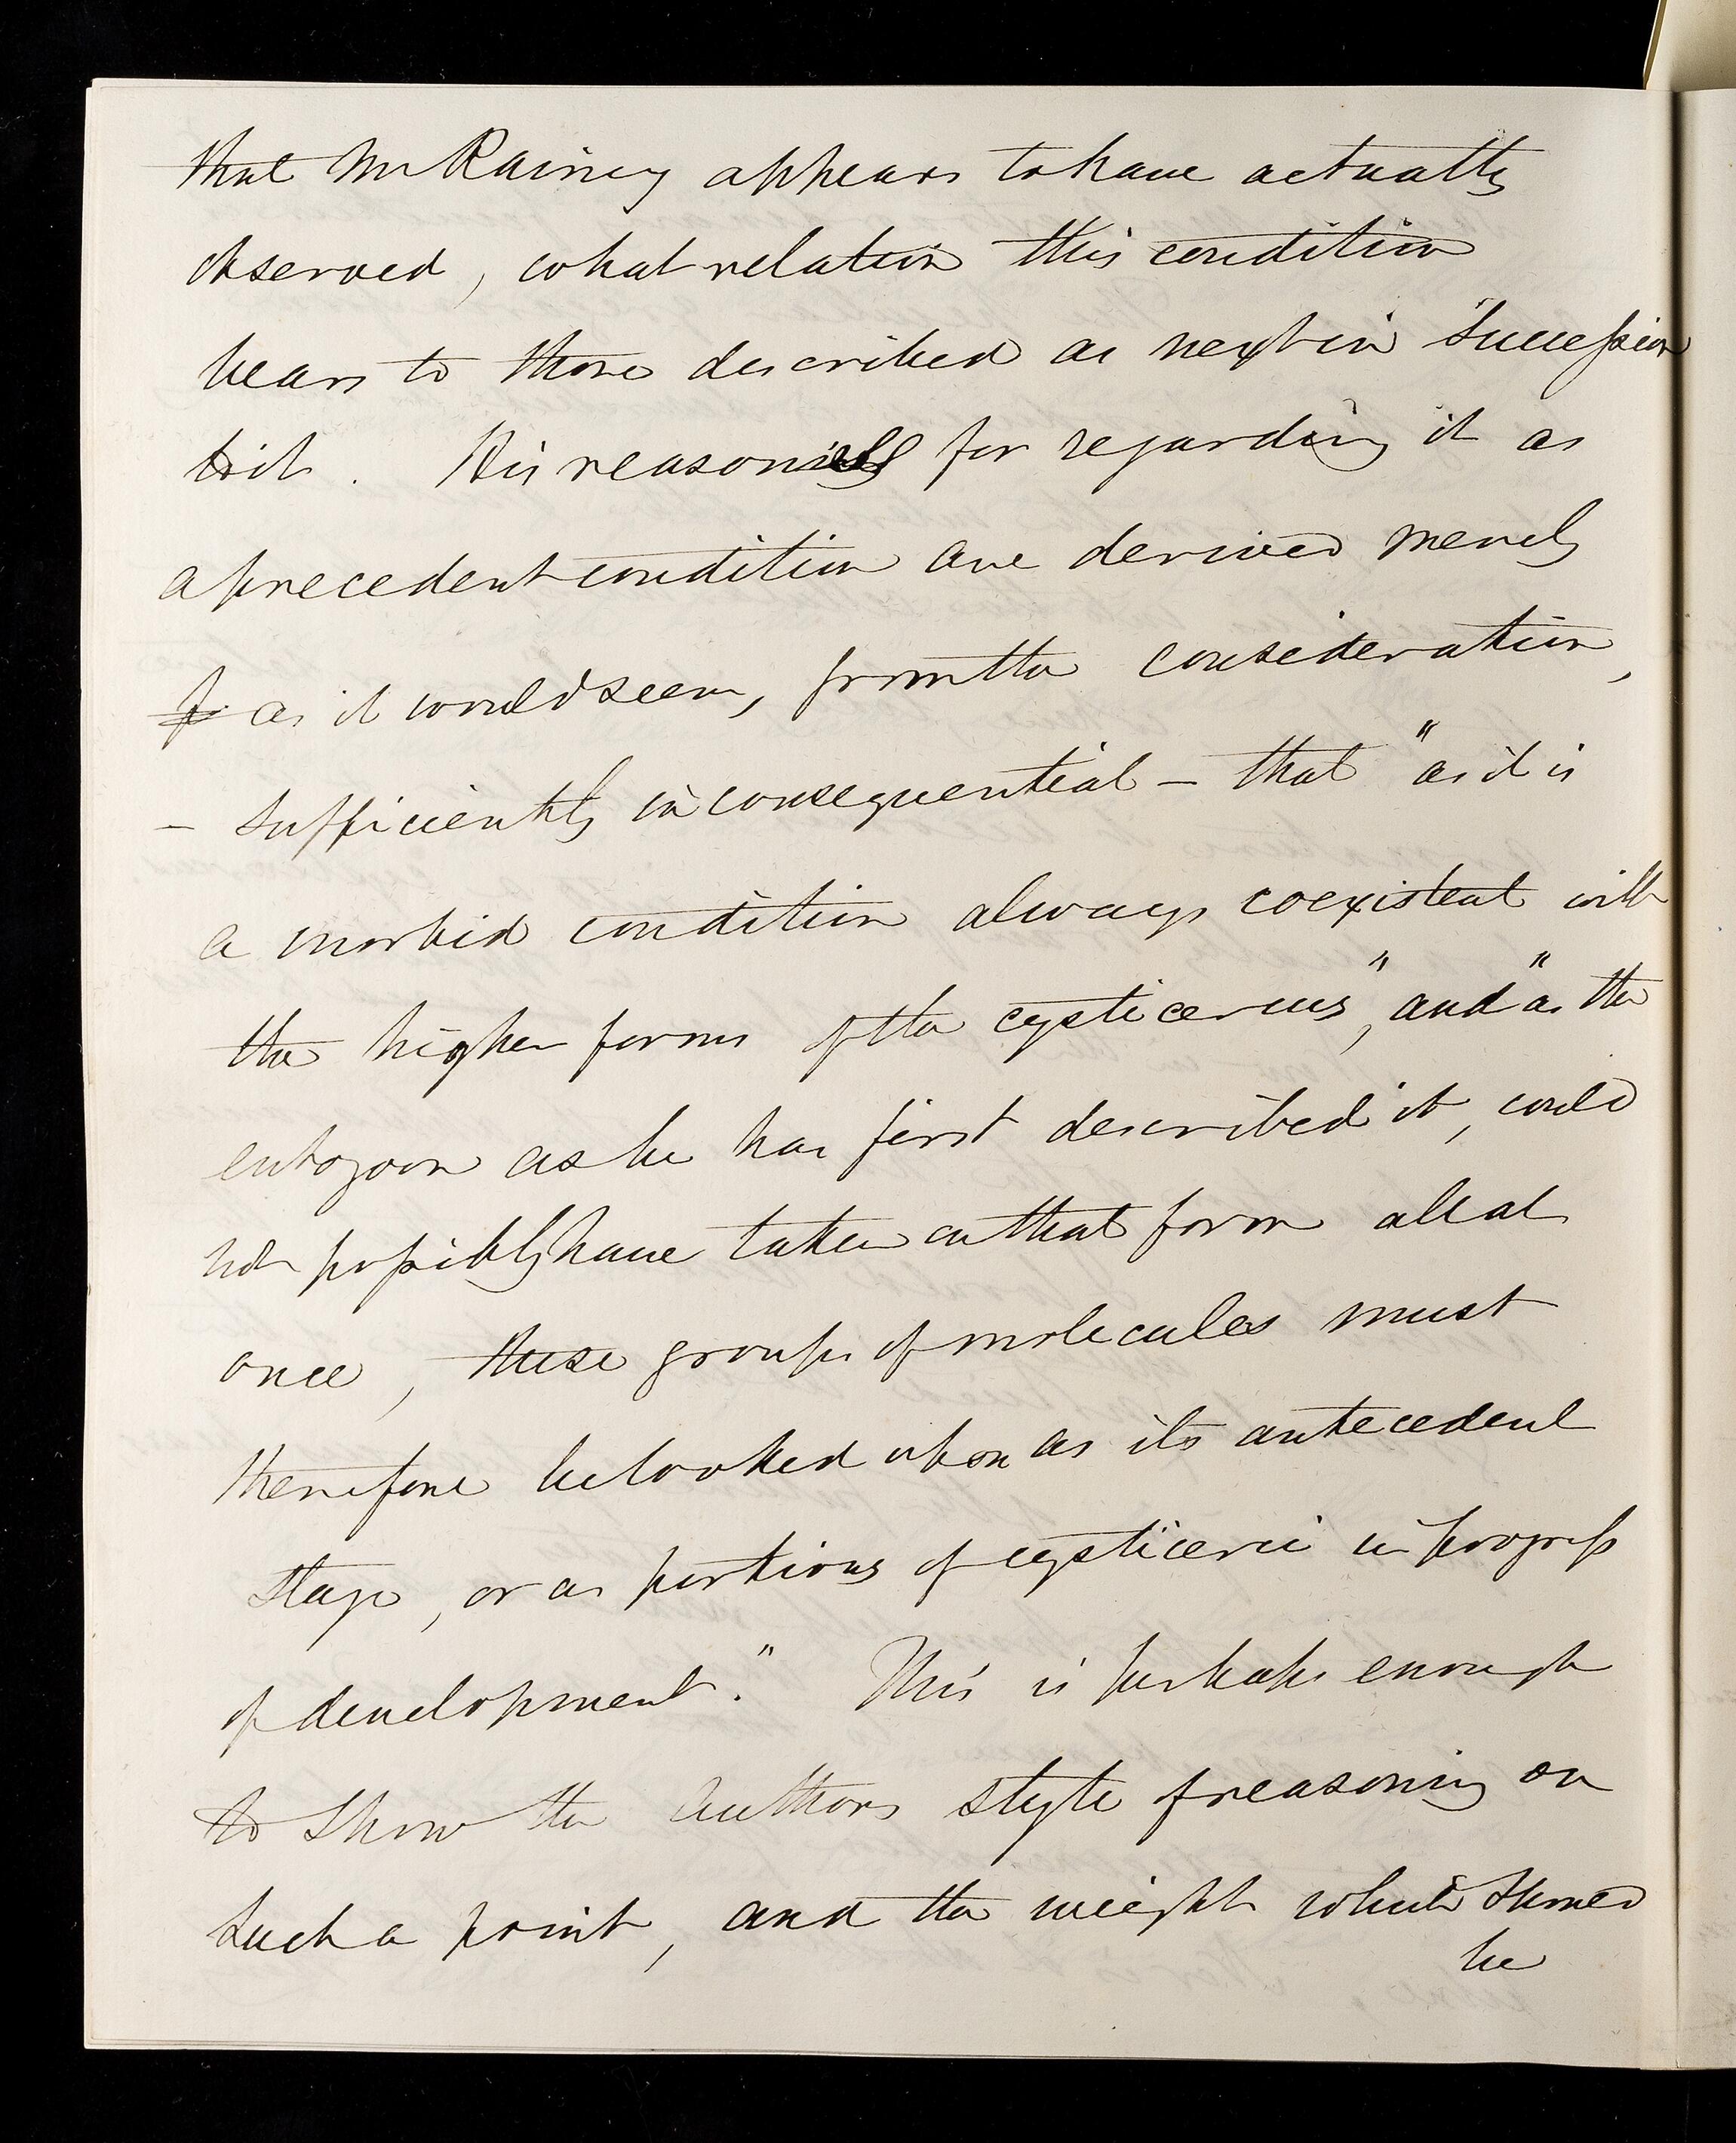 that Mr Rainey appears to have actually
observed, what relation this condition
bears to those described as next in succession
to it. His reasons for regarding it as
a precedent condition are derived merely
as it would seem, from the consideration,
– sufficiently inconsequential – that "as it is
a morbid condition always coexistent with
the higher forms of the cysticercus", and "as the
entozoon as he has first described it, could
not possibly have taken on that form all at
once, these groups of molecules must
therefore be looked upon as its antecedent
stage, or as portions of cysticerci in progress
of development." This is perhaps enough
to show the authors style of reasoning on
such a point, and the weight which should
be